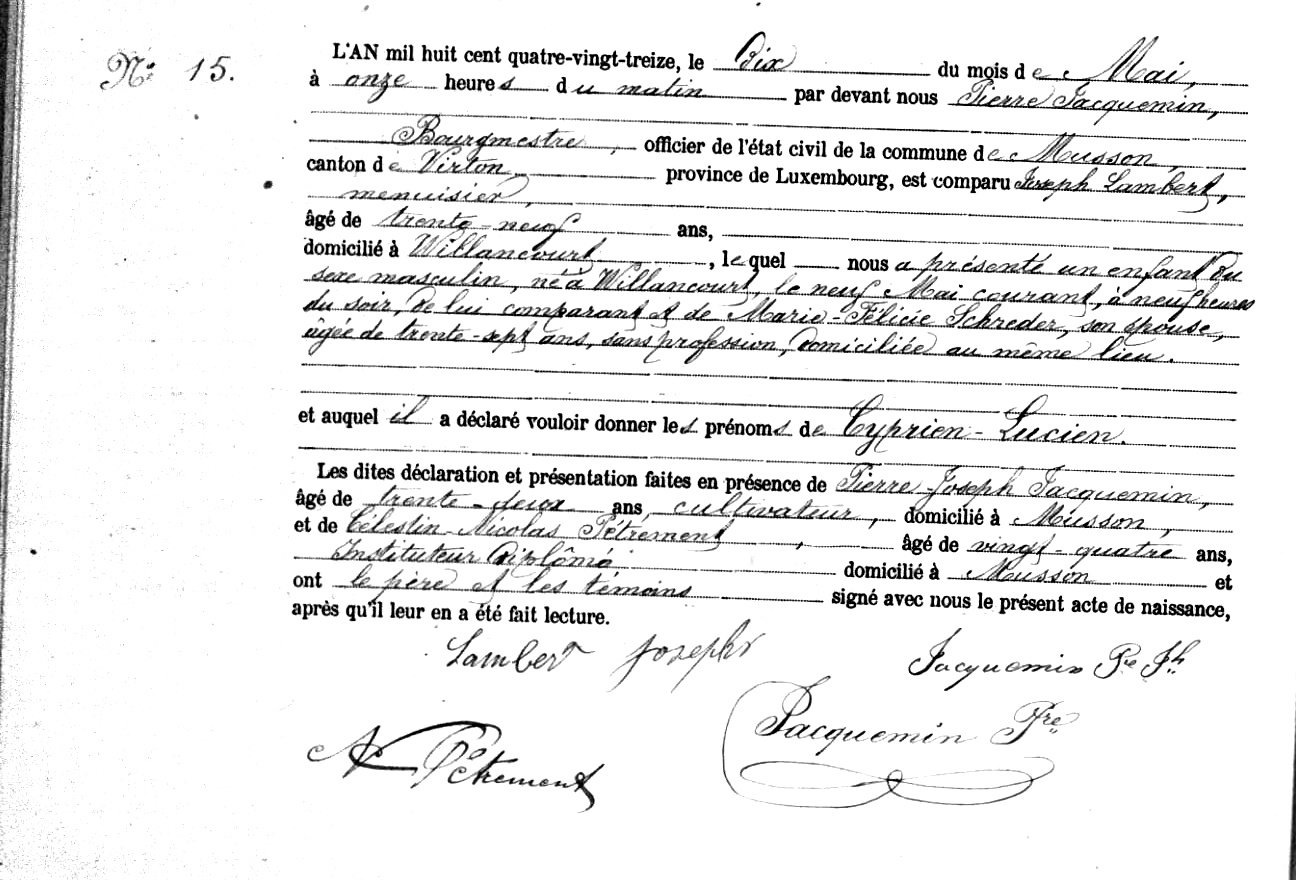 N° 15.
L'AN mil huit cent quatre-vingt-treize, le Dix du mois de Mai,
à onze heures du matin par devant nous Pierre Jacquemin,
Bourgmestre, officier de l'état civil de la commune de Musson,
canton de Virton, province de Luxembourg, est comparu Joseph Lambert,
menuisier,
âgé de trente-neuf ans,
domicilié à Willancourt, lequel nous a présenté un enfant du
sexe masculin, né à Willancourt, le neuf Mai courant, à neuf heures
du soir, de lui comparant et de Marie-Félicie Schreder, son épouse,
agée de trente-sept ans, sans profession, domiciliée au même lieu.
et auquel il a déclaré vouloir donner les prénoms de Cyprien-Lucien.
Les dites déclaration et présentation faites en présence de Pierre-Joseph Jacquemin,
âgé de trente-deux ans, cultivateur, domicilié à Musson,
et de Célestin-Nicolas Pétrement, âgé de vingt-quatre ans,
Instituteur diplômé domicilié à Musson et
ont le père et les témoins signé avec nous le présent acte de naissance,
après qu'il leur en a été fait lecture.
Lambert Joseph
Jacquemin Pre Jh
Jacquemin Prre
N Pétrement